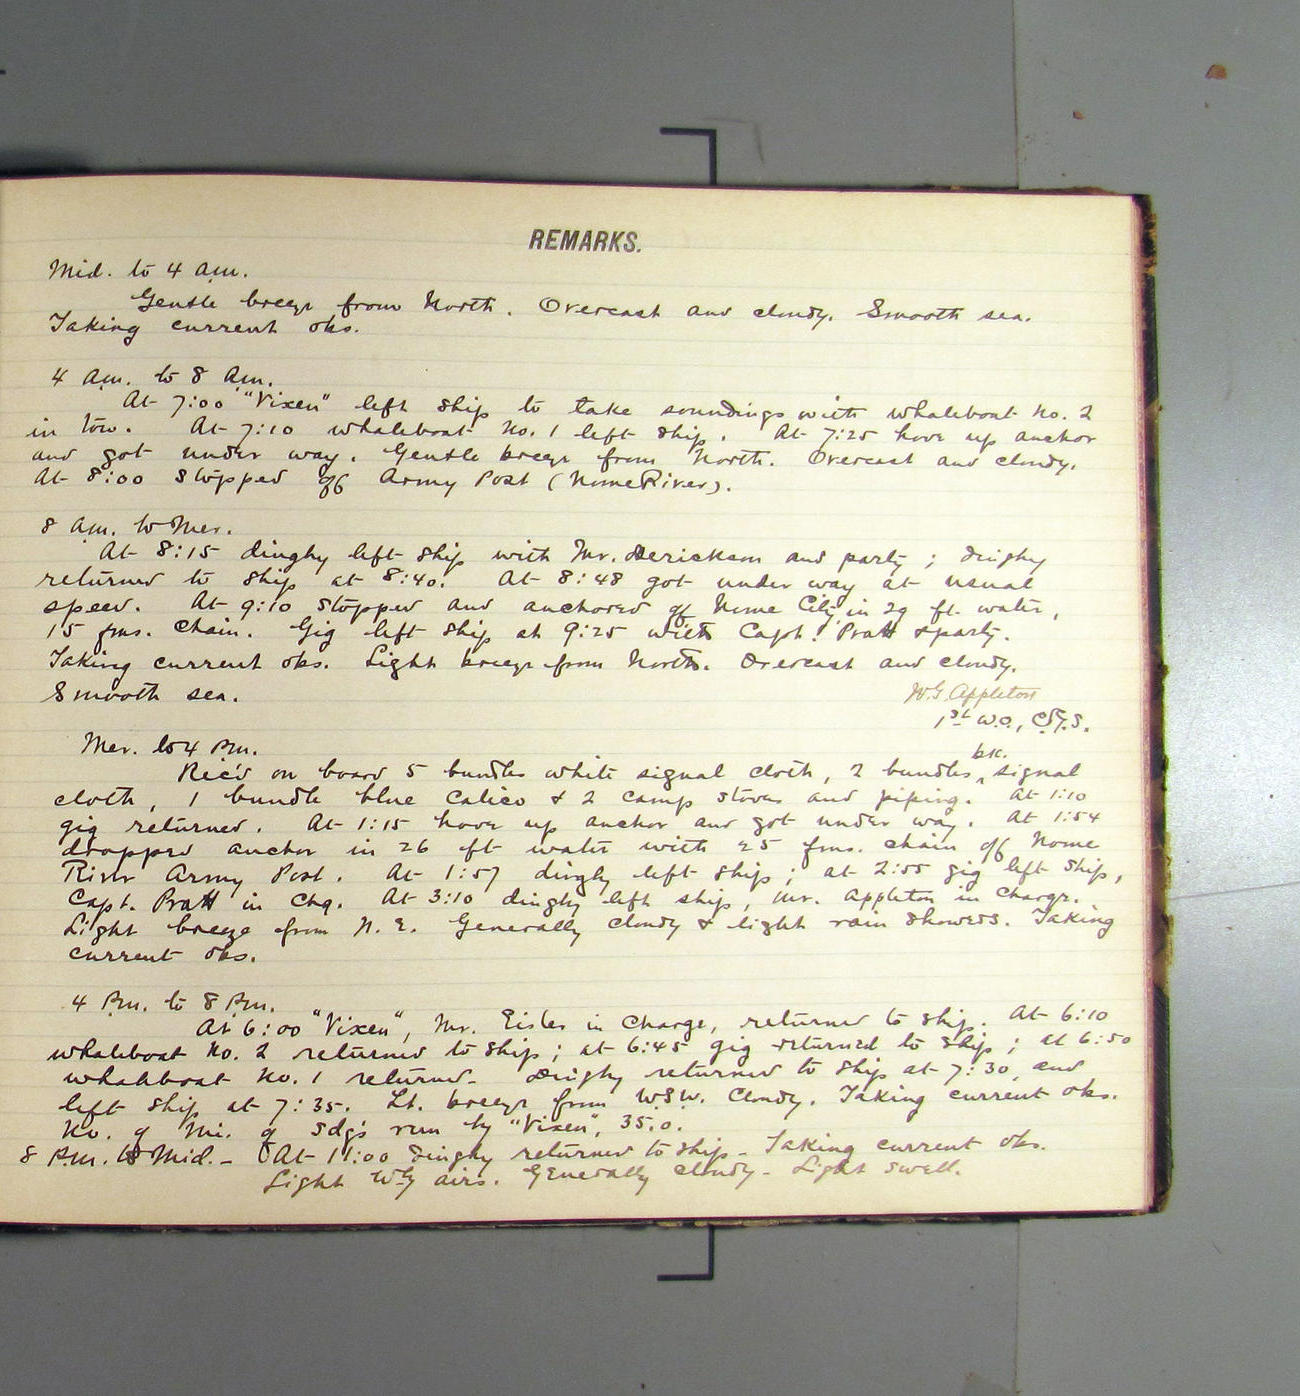 REMARKS.
Mid. to 4 a.m.
Gentle breeze from North. Overcast and cloudy. Smooth sea.
Taking current obs.
4 a.m. to 8 a.m.
At 7:00 "Vixen" left ship to take soundings with whaleboat No. 2
in tow. At 7:10 whaleboat No. 1 left ship. At 7:25 hove up anchor
and got under way. Gentle breeze from North. Overcast and cloudy.
At 8:00 stopped off Army Post (Nome River).
8 a.m. to Mer.
At 8:15 dinghy left ship with Mr. Derickson and party; dinghy
returned to ship at 8:40. At 8:48 got under way at usual
speed. At 9:10 stopped and anchored off Nome City, in 29 ft. water,
15 fms. chain. Gig left ship at 9:25 with Capt. Pratt & party.
Taking current obs. Light breeze from North. Overcast and cloudy.
Smooth sea.
W.G. Appleton
1st W.O., C.&G.S.
Mer. to 4 P.m.
bk.
Rec'd on board 5 bundles white signal cloth, 2 bundles ^ signal
cloth, 1 bundle blue calico & 2 camp stoves and piping. At 1:10
gig returned. At 1:15 hove up anchor and got under way. At 1:54
dropped anchor in 26 ft water with 25 fms. chain off Nome
River Army Post. At 1:57 dinghy left ship; at 2:55 gig left ship,
Capt. Pratt in chg. At 3:10 dinghy left ship, Mr. Appleton in charge.
Light breeze from N.E. Generally cloudy & light rain showers. Taking
current obs.
4 P.m. to 8 P.m.
At 6:00 "Vixen", Mr. in charge, returned to ship. At 6:10
whaleboat No. 2 returned to ship; at 6:45 gig returned to ship; at 6:50
whaleboat No. 1 returned. Dinghy returned to ship at 7:30 and
left ship at 7:35. Lt. breeze from WSW. Cloudy. Taking current obs.
No. of Mi. of sdgs run by "Vixen", 35.0.
8 P.m. to Mid. - At 11:00 dinghy returned to ship - Taking current obs.
Light W'ly airs. Generally cloudy - Light swell.